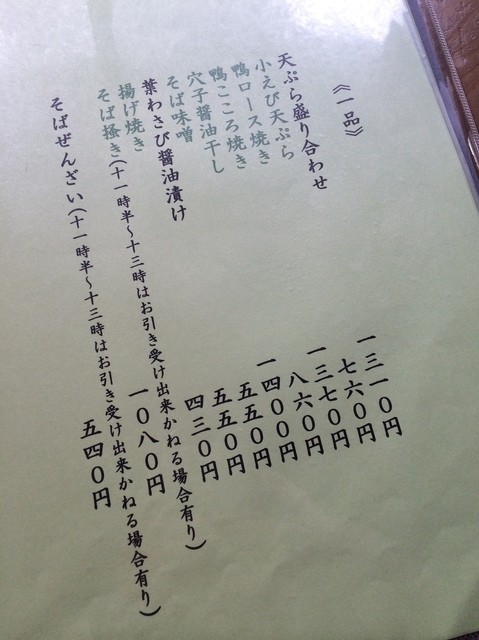 《一品》
天ぷら盛り合わせ 一三一〇円
小えび天ぷら 七六〇円
鴨ロース焼き 一三七〇円
鴨こころ焼き 八六〇円
穴子醤油干し 一四〇〇円
そば味噌 五五〇円
葉わさび醤油漬け 五五〇円
揚げ焼き 四三〇円
そば掻き(十一時半〜十三時はお引き受け出来かねる場合有り) 一〇八〇円
そばぜんざい(十一時半〜十三時はお引き受け出来かねる場合有り) 五四〇円